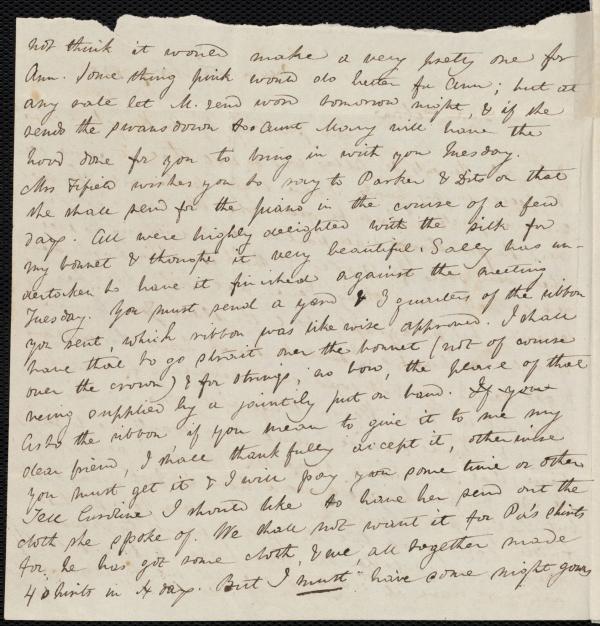 not think it would make a very pretty one for
Ann. Some thing pink would do better for Ann; but at
any rate let M. send word tomorrow night, & if she
sends the swansdown too Aunt Mary will have the
hood done for you to bring in with you Tuesday.
Mrs Fifield wishes you to say to Parker & Ditson that
she shall send for the piano in the course of a few
days. All were highly delighted with the silk for
my bonnet & thought it very beautiful. Sally has un-
dertaken to have it finished against the meeting
Tuesday. You must send a yard & 3 quarters of the ribbon
you sent, which ribbon was likewise approved. I shall
have that to go strait over the bonnet (not of course
over the crown) & for strings; no bow, the place of that
being supplied by a jointily put on band. If your
As to the ribbon, if you mean to give it to me my
dear friend, I shall thankfully accept it, otherwise
you must get it & I will pay you some time or other
Tell Caroline I should like to have her send out the
cloth she spoke of. We shall not want it for Pa's shirts
for he has got some cloth, & we all together made
4 shirts in a day. But I must have some night gowns